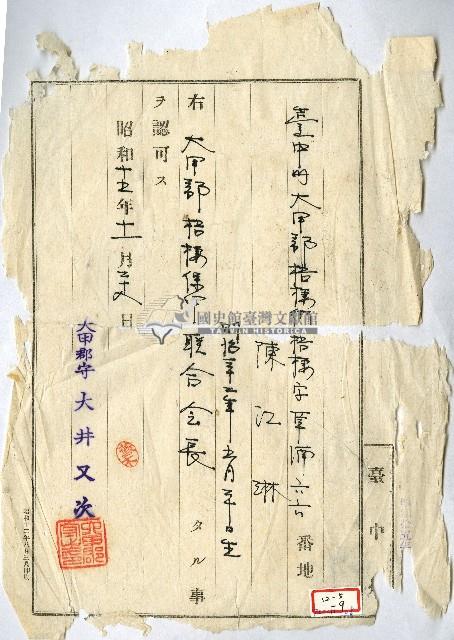 臺中州大甲郡梧棲街梧棲字草湳六六番地
陳江琳
明治三十二年五月三十日生
右大甲郡梧棲保甲聯合会長タル事
ヲ認可ス
昭和十五年十一月 日
大甲郡守大井又次
臺中
國史館臺灣文獻館
TAIWAN HISTORICA
12-5
-9